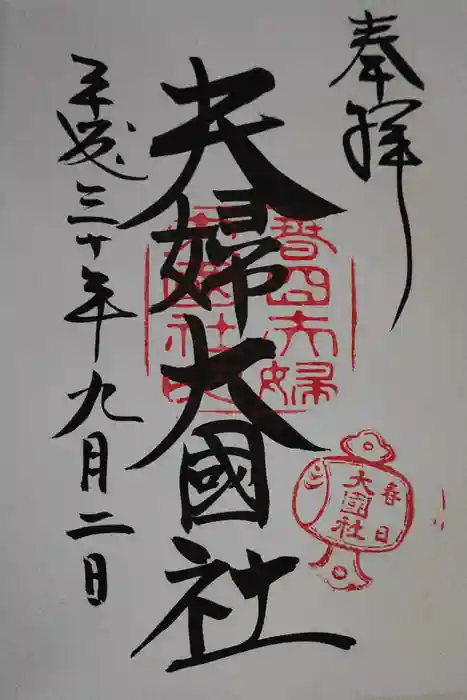 奉拝
夫婦大國社
平成三十年九月二日
春日
夫婦
大國社
春日
大國社